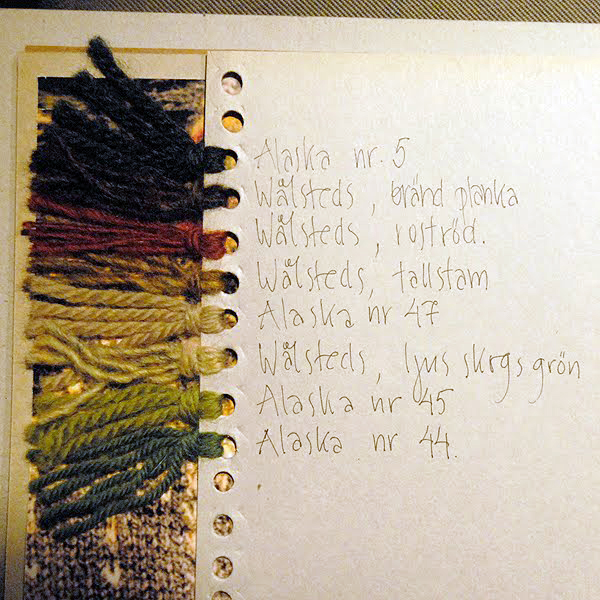 Alaska nr. 5
Wålsteds, bränd planka
Wålsteds, roströd.
Wålsteds, tallstam
Alaska nr 47
Wålsteds, ljus skogs grön
Alaska nr 45
Alaska nr 44.